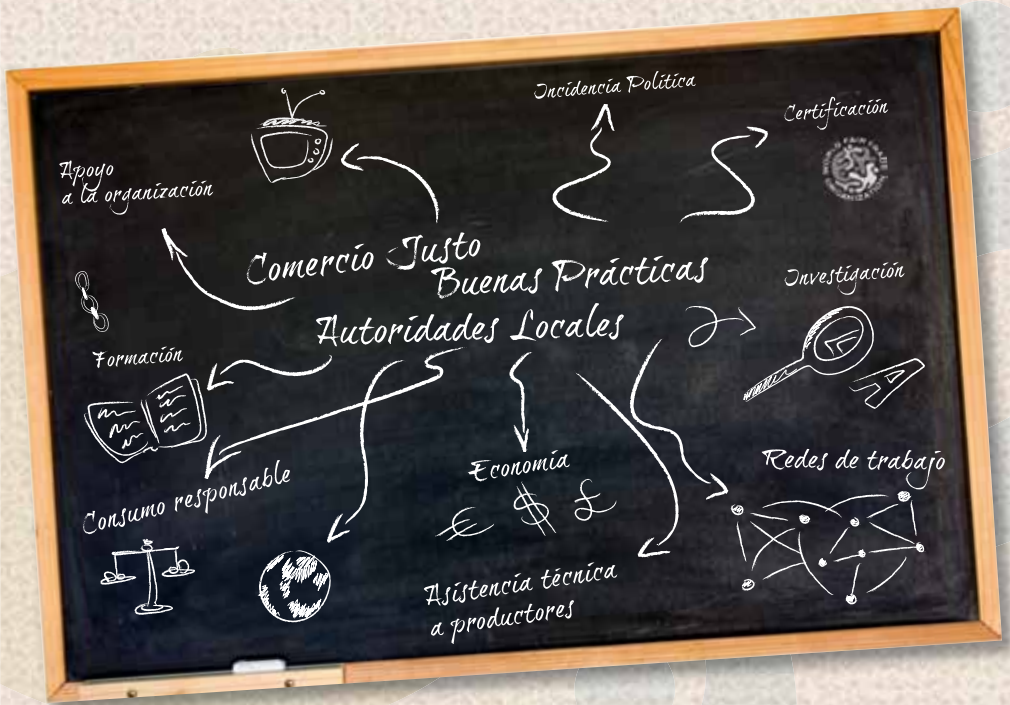 Incidencia Política
Certificación
Apoyo
a la organización
WORLD FAIR TRADE
ORGANIZATION
Comercio Justo
Buenas Prácticas
Autoridades Locales
Investigación
Formación
A
Consumo responsable
Economía
€ $ £
Redes de trabajo
Asistencia técnica
a productores